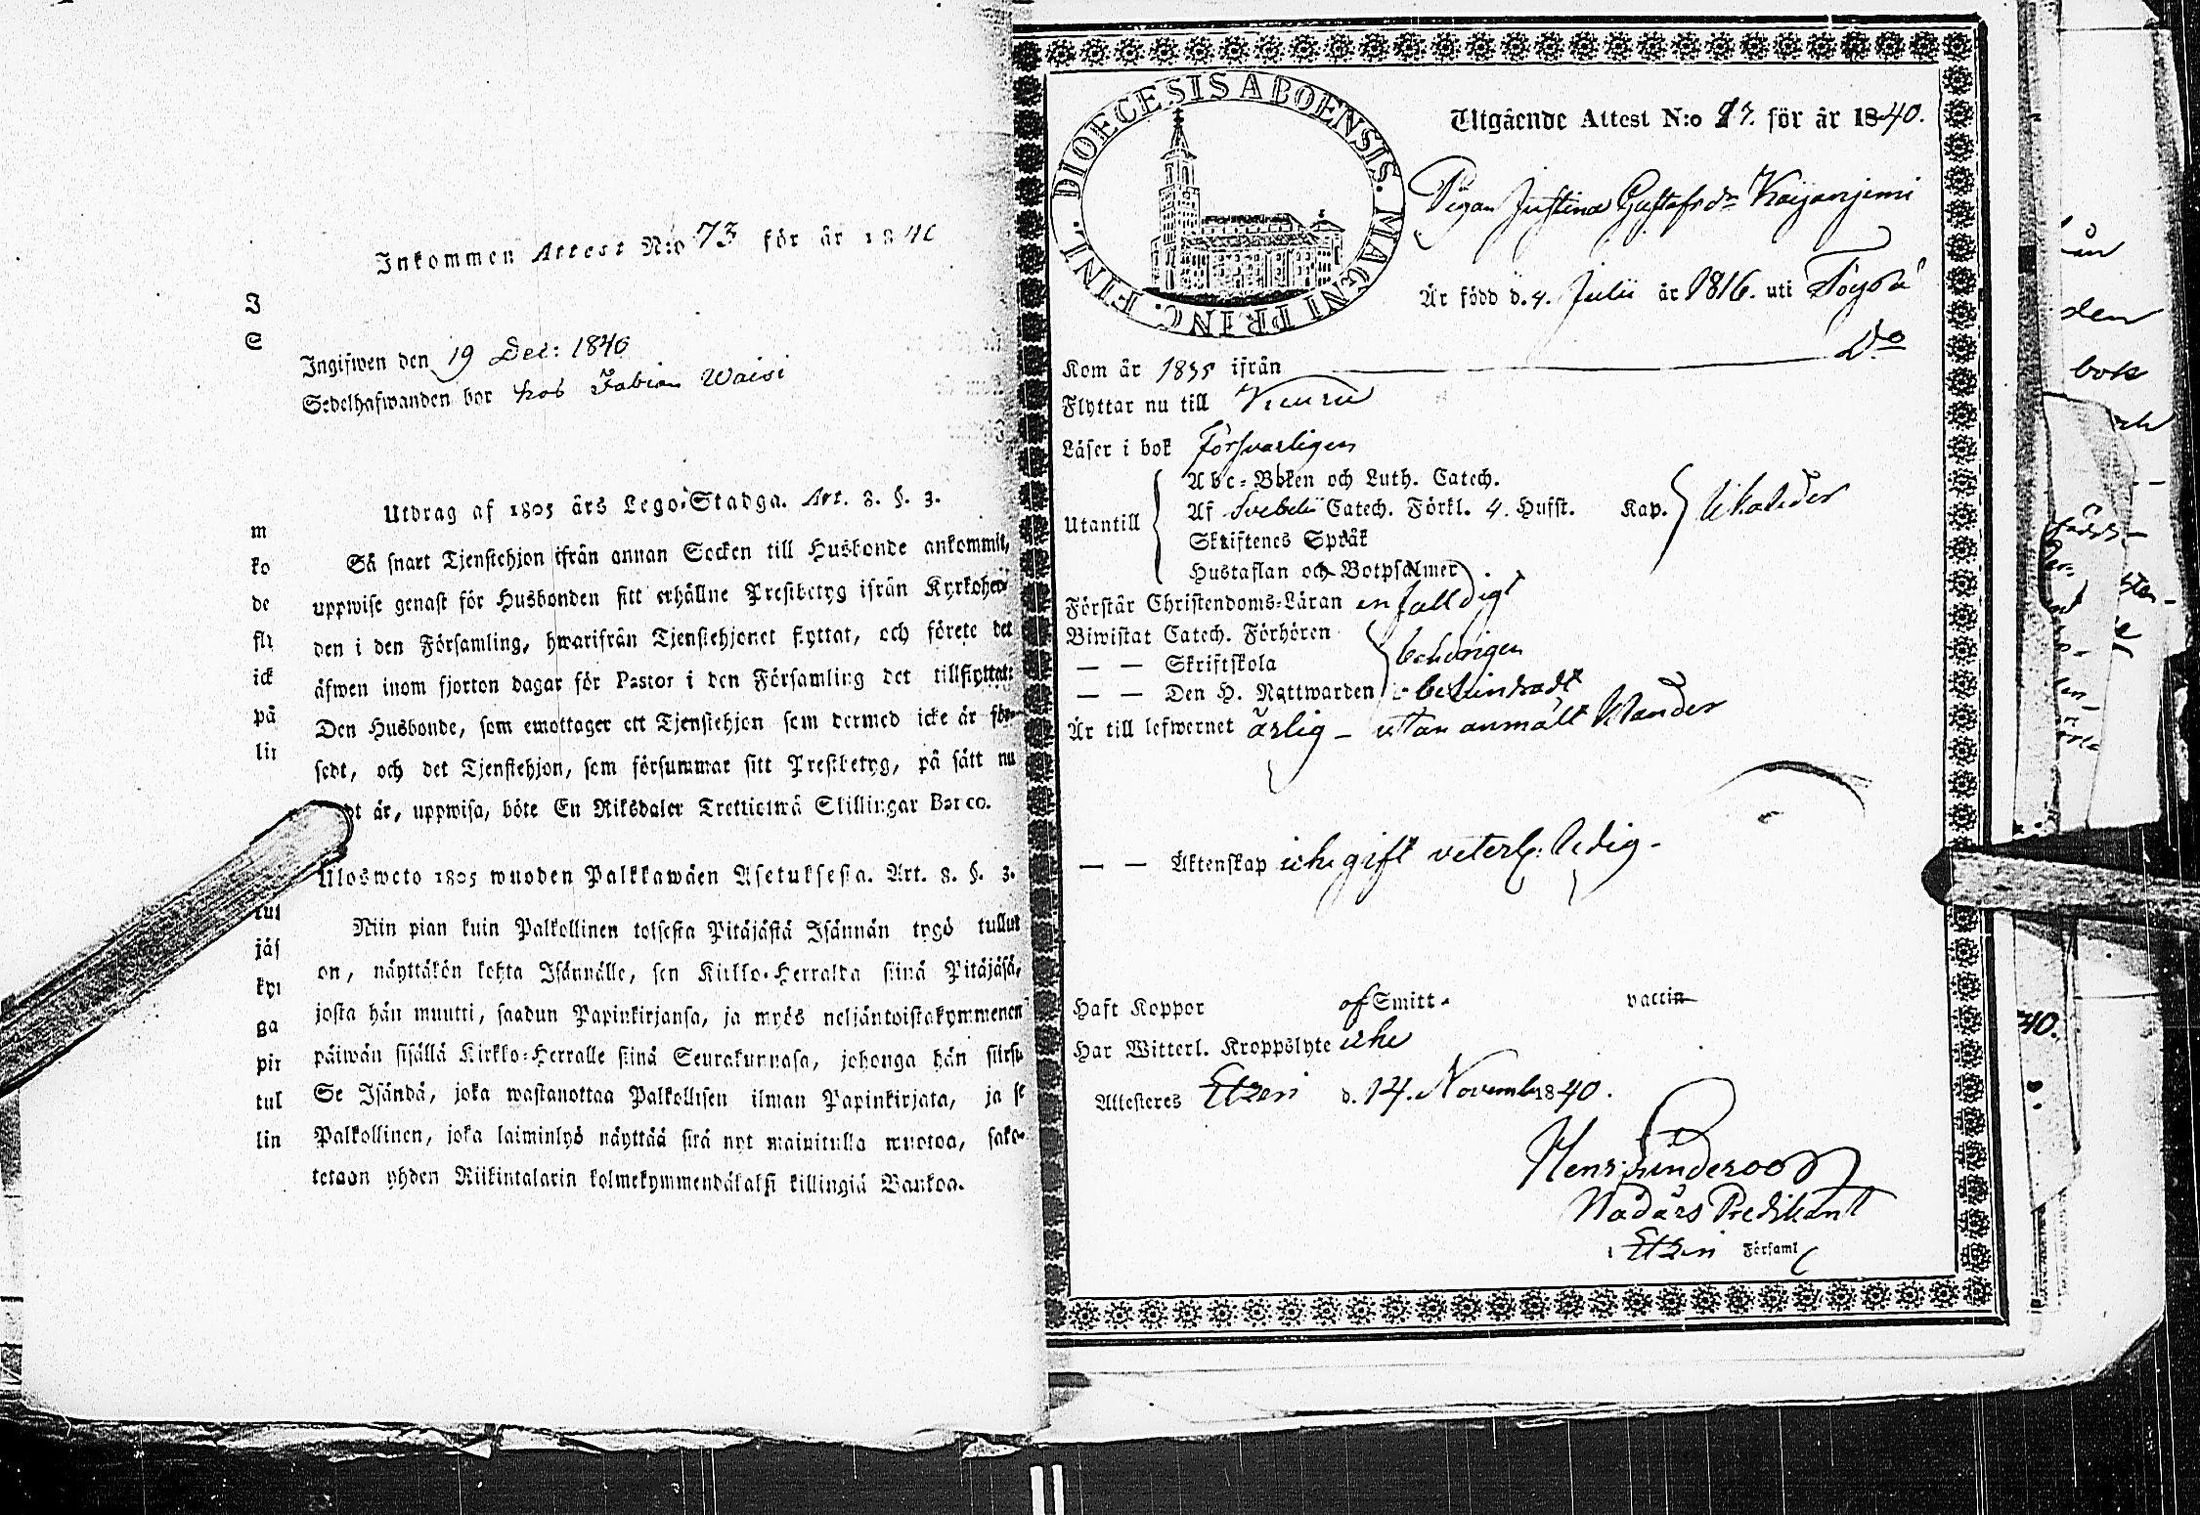 Inkommen Attest N:o 73 för år 1840
Ingifwen den 19 Dec: 1840
Sedelhafwanden bor hos Fabian Waisi
I
S
Utdrag af 1805 års Lego-Stadga. Art. 8. §. 3.
Så snart Tjenstehjon ifrån annan Socken till Husbonde ankommit,
uppwise genast för Husbonden sitt erhållne Prestbetyg ifrån Kyrkoher-
den i den Församling, hwarifrån Tjenstehjonet flyttat, och förete det
äfwen inom fjorton dagar för Pastor i den Församling det tillflyttat:
Den Husbonde, som emottager ett Tjenstehjon som dermed icke är för-
sedt, och det Tjenstehjon, som försummar sitt Prestbetyg, på sätt nu
är, uppwisa, böte En Riksdaler Trettietwå Skillingar Banco.
m
ko
de
fly
ick
på
lit
Ulosweto 1805 wuoden Palkkawäen Asetuksesta. Art. 8. §. 3.
Niin pian kuin Palkollinen toisesta Pitäjästä Isännän tygö tullut
on, näyttäkön kohta Isännälle, sen Kirkko-Herralta siinä Pitäjäsä,
josta hän muutti, saadun Papinkirjansa, ja myös neljäntoistakymmenen
päiwän sisällä Kirkko-Herralle siinä Seurakunnasa, johonga hän siirsi.
Se Isändä, joka wastanottaa Palkollisen ilman Papinkirjata, ja se
Palkollinen, joka laiminlyö näyttää sitä nyt mainitulla muotoa, sako-
tetaan yhden Riikintalarin kolmekymmendäkaksi killingiä Bankoa.
tul
jäs
kyr
ga
pit
tul
lin
DIOECESIS ABOENSIS. MAGNI PRINC. FINL.
Utgående Attest N:o 97. för år 1840.
Pigan Justina Gustafsdr Kaijanjemi
Är född d. 4. Julii år 1816. uti Töysä
Kom år 1835 ifrån Do
Flyttar nu till Keuru
Läser i bok försvarligen
Utantill
Abc-Boken och Luth. Catech.
Af Svebelii Catech. Förkl. 4. Hufst. Kap.
Skriftenes Språk
Hustaflan och Botpsalmer
Förstår Christendoms-Läran enfalldigt
Biwistat Catech. Förhören
— — Skriftskola behörigen
— — Den H. Nattwarden obehindradt
Är till lefwernet ärlig – utan anmält klander
— — Äktenskap icke gift veterl. ledig –
Haft Koppor af Smitt. vaccin
Har Witterl. Kroppslyte icke
Attesteres Etzeri d. 14. Novemb. 1840.
Nådårs Predikant
i Etzeri Församl
40.